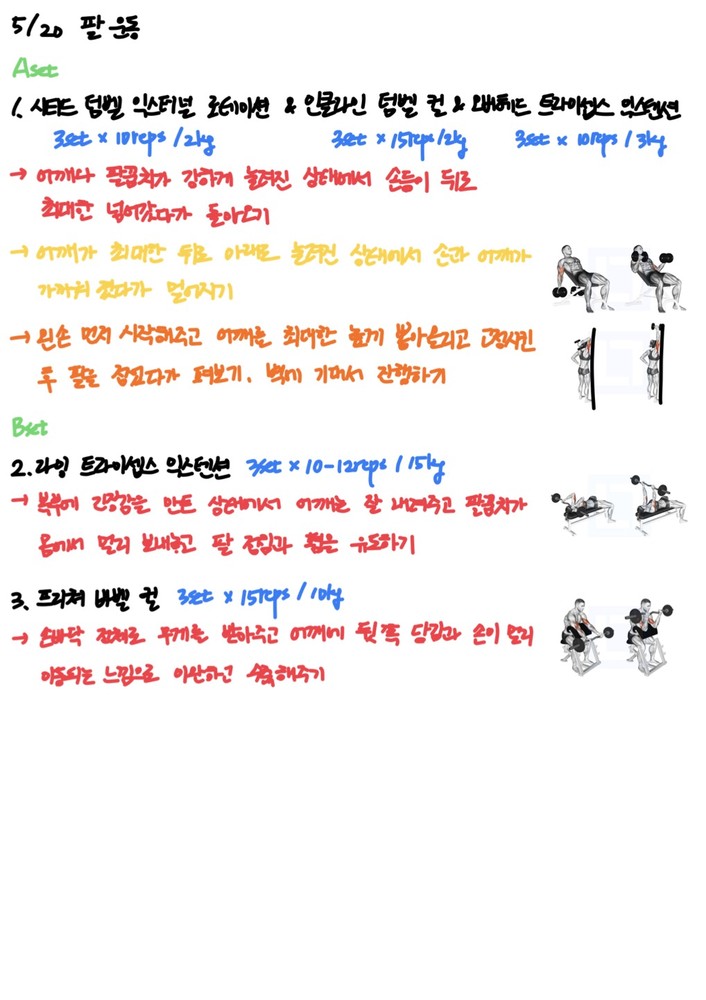 5/20 팔 운동
Aset
1. 시티드 덤벨 익스터널 로테이션 & 인클라인 덤벨 컬 & 오버헤드 트라이셉스 익스텐션
3set × 10reps / 2kg 3set × 15reps / 2kg 3set × 10reps / 3kg
→ 어깨와 팔꿈치가 강하게 눌려진 상태에서 손등이 뒤로
최대한 넘어갔다가 돌아오기
→ 어깨가 최대한 뒤로 아래로 눌려진 상태에서 손과 어깨가
가까워 졌다가 멀어지기
→ 왼손 먼저 시작해주고 어깨를 최대한 높게 뽑아올리고 고정시킨
후 팔을 접었다가 펴보기. 벽에 기대서 진행하기
Bset
2. 라잉 트라이셉스 익스텐션 3set × 10-12reps / 15kg
→ 복부에 긴장감을 만든 상태에서 어깨는 잘 내려주고 팔꿈치가
몸에서 멀리 보내주고 팔 접힘과 폄은 유도하기
3. 프리쳐 바벨 컬 3set × 15reps / 10kg
→ 손바닥 전체로 무게를 받아주고 어깨에 뒷쪽 당김과 손이 멀리
이동되는 느낌으로 이완하고 수축해주기